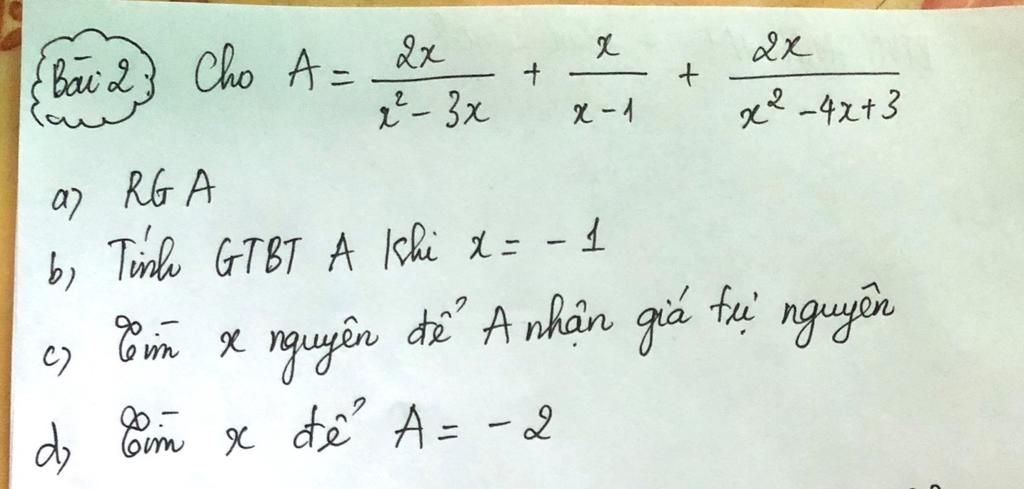 Bài 2 Cho A = 2x/(x² - 3x) + x/(x - 1) + 2x/(x² - 4x + 3)
a) RG A
b) Tính GTBT A khi x = -1
c) Tìm x nguyên để A nhận giá trị nguyên
d) Tìm x để A = -2